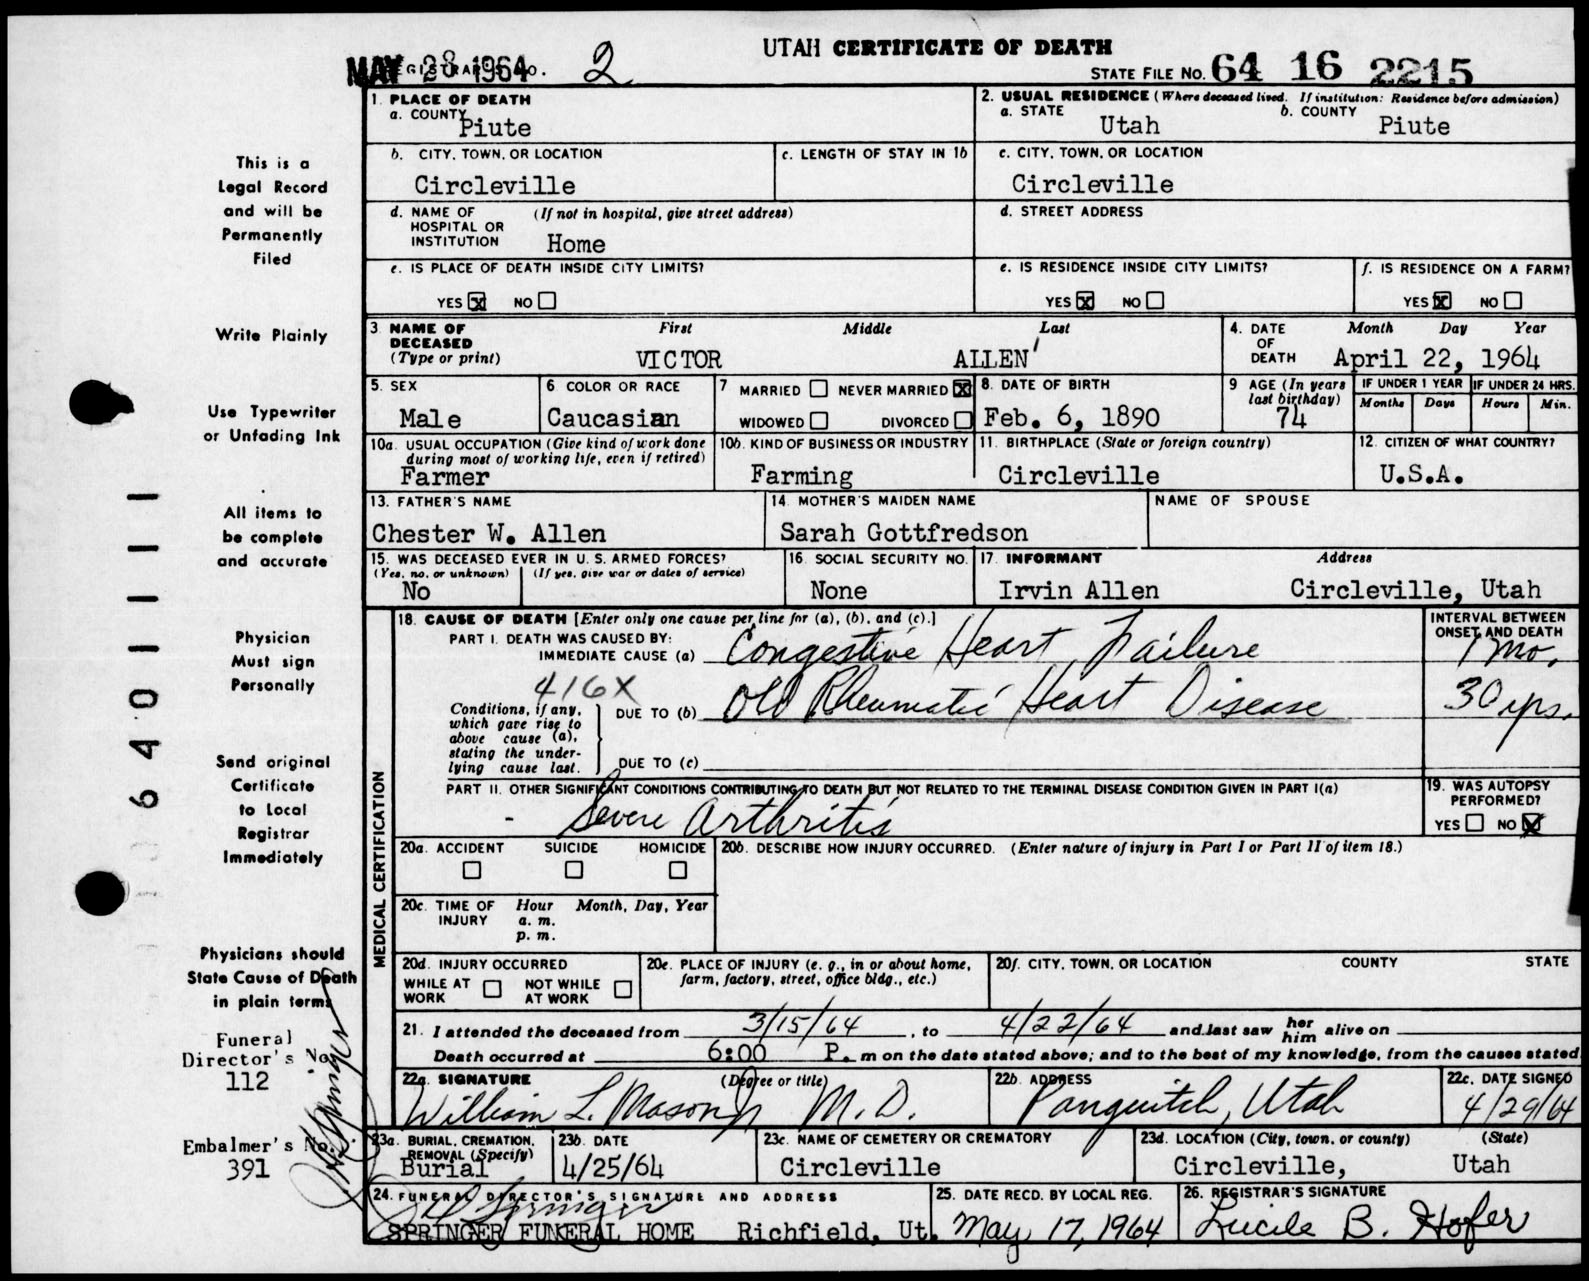 UTAH CERTIFICATE OF DEATH
MAY 28 1964
REGISTRAR'S NO. 2
STATE FILE NO. 64 16 2215
This is a
Legal Record
and will be
Permanently
Filed
Write Plainly
Use Typewriter
or Unfading Ink
All items to
be complete
and accurate
Physician
Must sign
Personally
Send original
Certificate
to Local
Registrar
Immediately
Physicians should
State Cause of Death
in plain terms
Funeral
Director's No.
112
Embalmer's No.
391
6401
1. PLACE OF DEATH
a. COUNTY
Piute
2. USUAL RESIDENCE (Where deceased lived. If institution: Residence before admission)
a. STATE Utah b. COUNTY Piute
b. CITY, TOWN, OR LOCATION
Circleville
c. LENGTH OF STAY IN 1b
c. CITY, TOWN, OR LOCATION
Circleville
d. NAME OF HOSPITAL OR INSTITUTION (If not in hospital, give street address)
Home
d. STREET ADDRESS
e. IS PLACE OF DEATH INSIDE CITY LIMITS?
YES X NO
e. IS RESIDENCE INSIDE CITY LIMITS?
YES X NO
f. IS RESIDENCE ON A FARM?
YES X NO
3. NAME OF DECEASED (Type or print)
First Middle Last
VICTOR ALLEN
4. DATE OF DEATH Month Day Year
April 22, 1964
5. SEX
Male
6 COLOR OR RACE
Caucasian
7 MARRIED NEVER MARRIED X
WIDOWED DIVORCED
8. DATE OF BIRTH
Feb. 6, 1890
9 AGE (In years last birthday)
74
IF UNDER 1 YEAR
Months Days
IF UNDER 24 HRS.
Hours Min.
10a. USUAL OCCUPATION (Give kind of work done during most of working life, even if retired)
Farmer
10b. KIND OF BUSINESS OR INDUSTRY
Farming
11. BIRTHPLACE (State or foreign country)
Circleville
12. CITIZEN OF WHAT COUNTRY?
U.S.A.
13. FATHER'S NAME
Chester W. Allen
14. MOTHER'S MAIDEN NAME
Sarah Gottfredson
NAME OF SPOUSE
15. WAS DECEASED EVER IN U. S. ARMED FORCES?
(Yes, no, or unknown) (If yes, give war or dates of service)
No
16. SOCIAL SECURITY NO.
None
17. INFORMANT Address
Irvin Allen Circleville, Utah
MEDICAL CERTIFICATION
18. CAUSE OF DEATH [Enter only one cause per line for (a), (b), and (c).]
INTERVAL BETWEEN ONSET AND DEATH
PART I. DEATH WAS CAUSED BY:
IMMEDIATE CAUSE (a) Congestive Heart Failure 1 mo.
416X
Conditions, if any, which gave rise to above cause (a), stating the underlying cause last.
DUE TO (b) Old Rheumatic Heart Disease 30 yrs.
DUE TO (c)
PART II. OTHER SIGNIFICANT CONDITIONS CONTRIBUTING TO DEATH BUT NOT RELATED TO THE TERMINAL DISEASE CONDITION GIVEN IN PART I(a)
- Severe Arthritis
19. WAS AUTOPSY PERFORMED?
YES NO X
20a. ACCIDENT SUICIDE HOMICIDE
20b. DESCRIBE HOW INJURY OCCURRED. (Enter nature of injury in Part I or Part II of item 18.)
20c. TIME OF INJURY Hour Month, Day, Year
a. m.
p. m.
20d. INJURY OCCURRED
WHILE AT WORK NOT WHILE AT WORK
20e. PLACE OF INJURY (e. g., in or about home, farm, factory, street, office bldg., etc.)
20f. CITY, TOWN, OR LOCATION COUNTY STATE
21. I attended the deceased from 3/15/64, to 4/22/64 and last saw her him alive on
Death occurred at 6:00 P. m on the date stated above; and to the best of my knowledge, from the causes stated.
22a. SIGNATURE (Degree or title)
William L. Mason Jr M.D.
22b. ADDRESS
Panguitch, Utah
22c. DATE SIGNED
4/29/64
23a. BURIAL, CREMATION, REMOVAL (Specify)
Burial
23b. DATE
4/25/64
23c. NAME OF CEMETERY OR CREMATORY
Circleville
23d. LOCATION (City, town, or county) (State)
Circleville, Utah
24. FUNERAL DIRECTOR'S SIGNATURE AND ADDRESS
Springer
SPRINGER FUNERAL HOME Richfield, Ut.
25. DATE RECD. BY LOCAL REG.
May 17, 1964
26. REGISTRAR'S SIGNATURE
Lucile B. Hofer